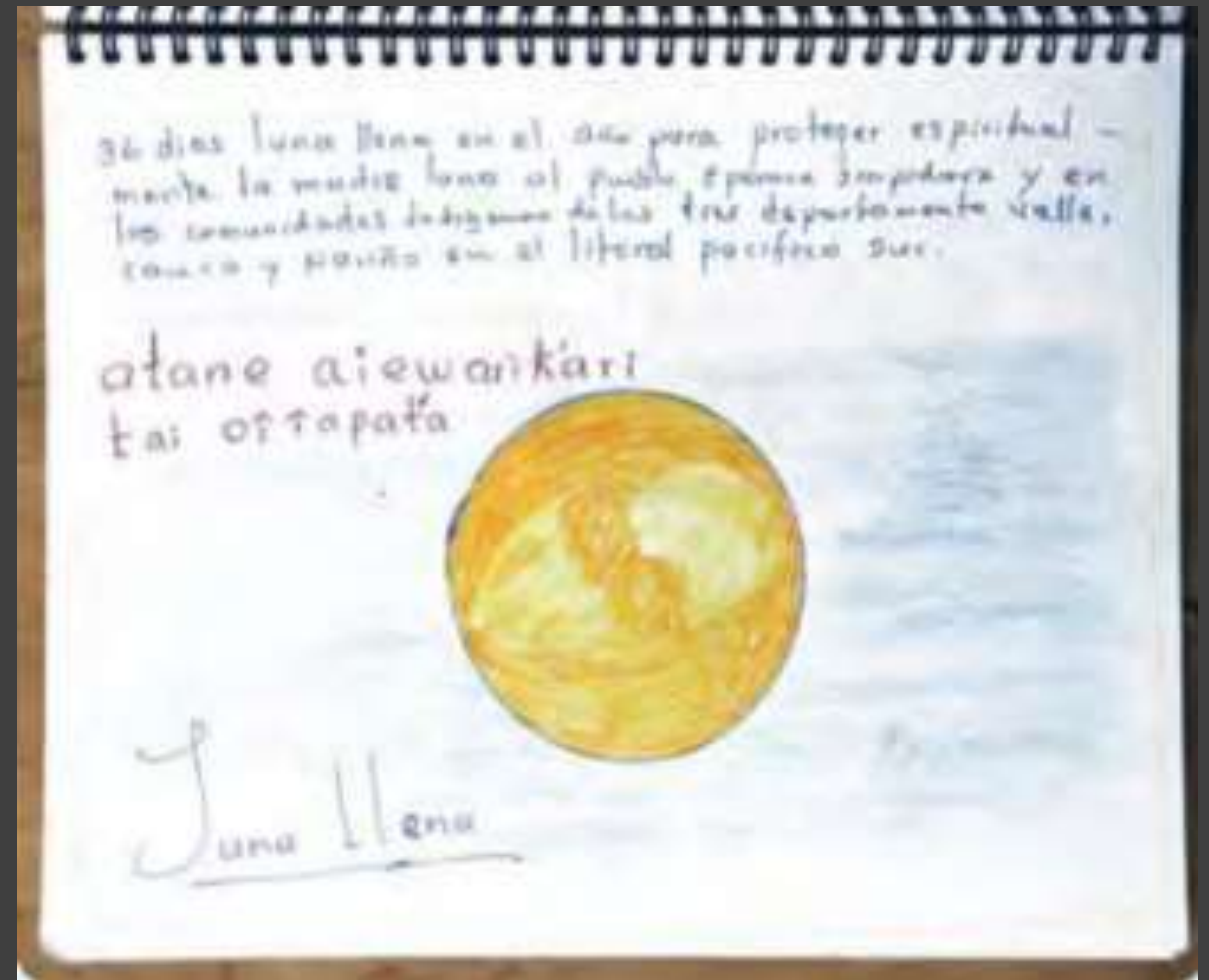 36 dias luna llena en el año para proteger espiritual -
mente la madre luna al pueblo eperara siapidara y en
las comunidades indigenas de los tres departamento valle,
cauca y nariño en el literal pacifico sur.
atane aiewarikari
tai
Luna llena